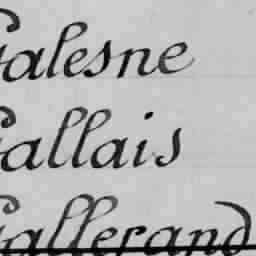 Galesne
Gallais
Gallerand